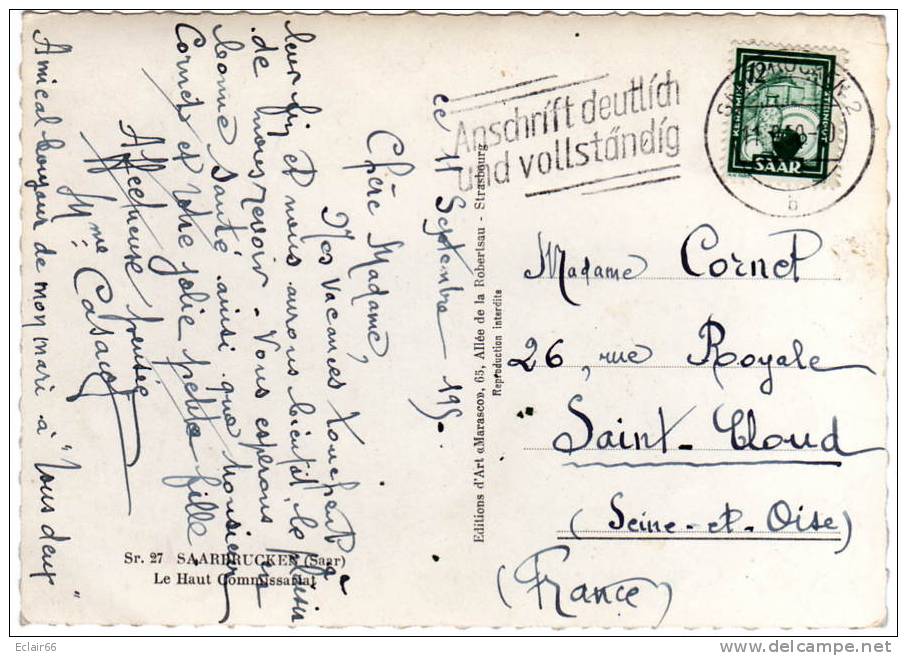 ce 11 Septembre 195..
Chère Madame,
Nos vacances touchent à
leur fin et nous aurons bientôt le plaisir
de vous revoir. Vous espérons en
bonne santé, ainsi que Monsieur
Cornet et votre jolie petite fille
Affectueuse pensée
Mme
Amical bonjour de mon mari à "Tous deux"
Sr. 27 SAARBRUCKEN (Saar)
Le Haut Commissariat
Editions d'Art «Marasco», 65, Allée de la Robertsau - Strasbourg
Reproduction interdite
Anschrift deutlich
und vollständig
12
SAAR
b
Madame Cornet
26, rue Royale
Saint-Cloud
(Seine-et-Oise)
(France)
Eclair66
www.delcampe.net